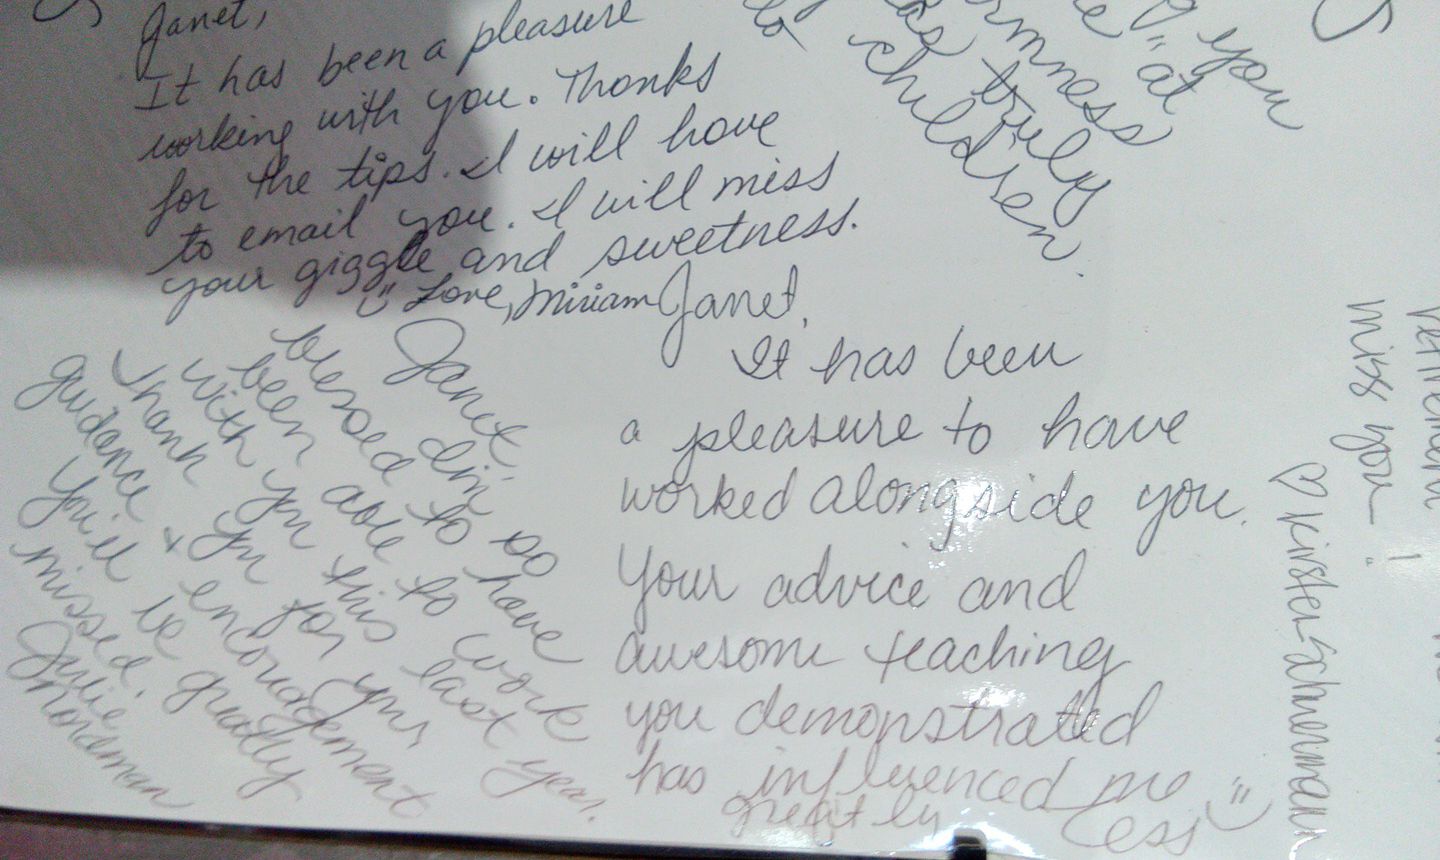 Janet,
It has been a pleasure
working with you. Thanks
for the tips. I will have
to email you. I will miss
your giggle and sweetness.
Love, Miriam
you
at
truly
children.
Janet,
It has been
a pleasure to have
worked alongside you.
Your advice and
awesome teaching
you demonstrated
has influenced me
greatly
Janet,
blessed to have
been able to work
with you this last year.
Thank you for your
guidance + encouragement
You'll be greatly
missed.
Julie
Nordman
retirement!
miss you
♡ Kirsten Schnermann